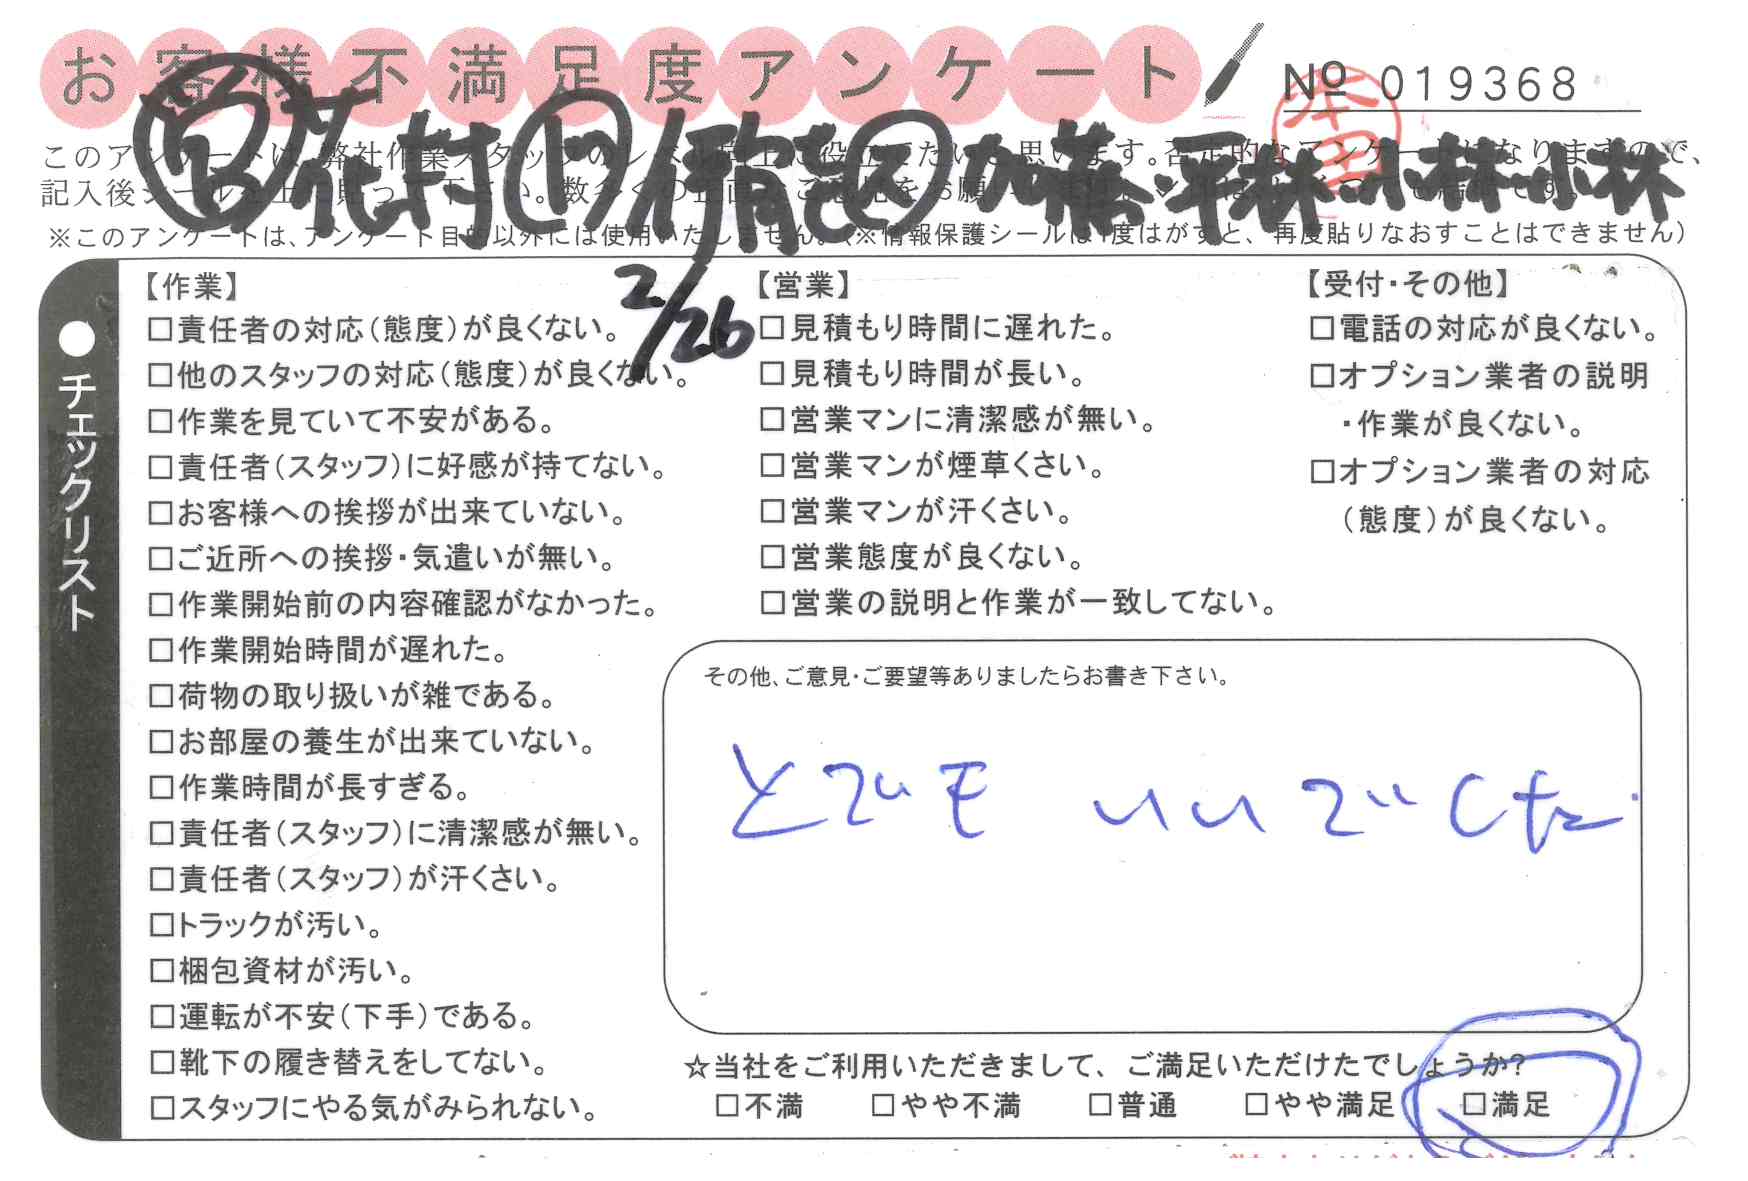 お客様不満足度アンケート
№ 019368
花村 伊 加藤・平林・小林・小林
このアンケートは、弊社作業スタッフのレベル向上に役立てたいと思います。否定的なアンケートになりますので、
記入後シールを上に貼って下さい。数多くの正直なご意見をお願い
※このアンケートは、アンケート目的以外には使用いたしません。(※情報保護シールは1度はがすと、再度貼りなおすことはできません)
2/26
●チェックリスト
【作業】
□責任者の対応(態度)が良くない。
□他のスタッフの対応(態度)が良くない。
□作業を見ていて不安がある。
□責任者(スタッフ)に好感が持てない。
□お客様への挨拶が出来ていない。
□ご近所への挨拶・気遣いが無い。
□作業開始前の内容確認がなかった。
□作業開始時間が遅れた。
□荷物の取り扱いが雑である。
□お部屋の養生が出来ていない。
□作業時間が長すぎる。
□責任者(スタッフ)に清潔感が無い。
□責任者(スタッフ)が汗くさい。
□トラックが汚い。
□梱包資材が汚い。
□運転が不安(下手)である。
□靴下の履き替えをしてない。
□スタッフにやる気がみられない。
【営業】
□見積もり時間に遅れた。
□見積もり時間が長い。
□営業マンに清潔感が無い。
□営業マンが煙草くさい。
□営業マンが汗くさい。
□営業態度が良くない。
□営業の説明と作業が一致してない。
【受付・その他】
□電話の対応が良くない。
□オプション業者の説明
・作業が良くない。
□オプション業者の対応
(態度)が良くない。
その他、ご意見・ご要望等ありましたらお書き下さい。
とでも いいでした
☆当社をご利用いただきまして、ご満足いただけたでしょうか?
□不満 □やや不満 □普通 □やや満足 □満足